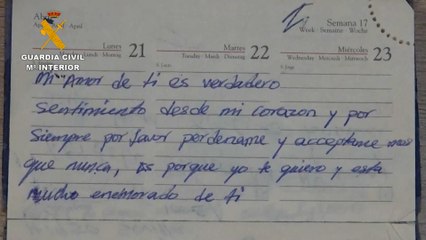 Abril
April
GUARDIA CIVIL
Mº INTERIOR
Semana 17
Week / Semaine / Woche
Lunes 21
Martes 22
Tuesday / Mardi / Dienstag
Miércoles 23
Wednesday / Mercredi / Mittwoch
Mi Amor de ti es verdadero
sentimiento desde mi corazon y por
siempre por favor perdename y acceptame mas
que nunca, es porque yo te quiero y esta
mucho enemorado de ti